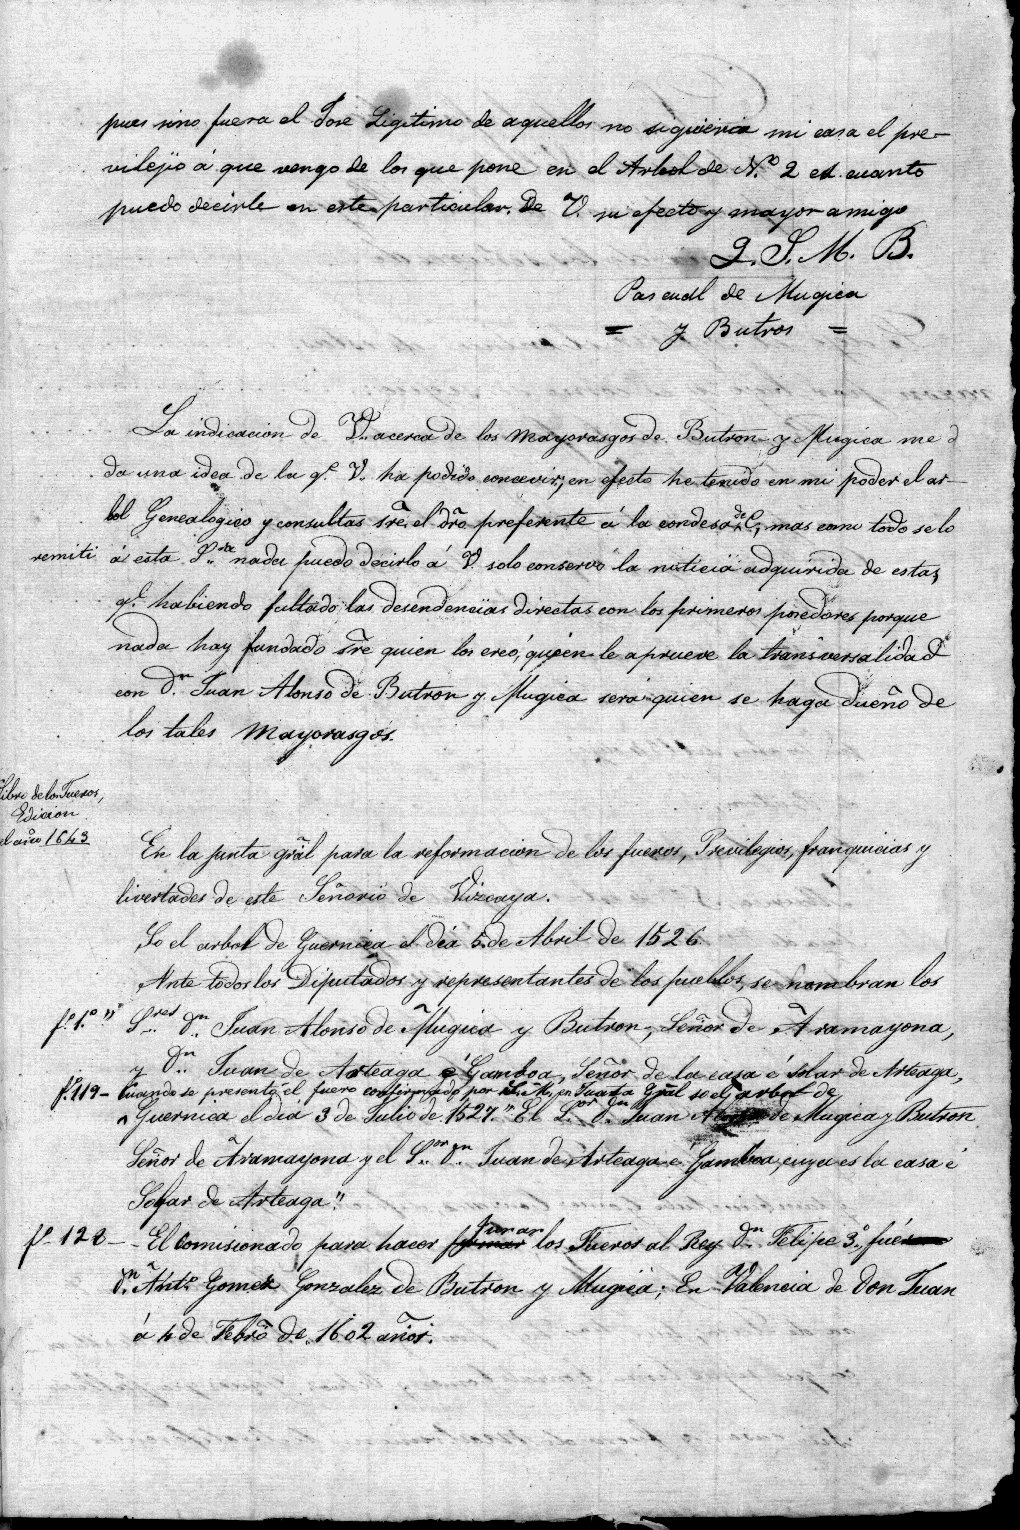 pues sino fuera el Jose Ligitimo de aquellos no siguieria mi casa el pre-
vilejio á que vengo de los que pone en el Arbol de N.º 2 es cuanto
puedo decirle en este particular. De V. su efecto y mayor amigo
Q. S. M. B.
Pascual de Mugica
= y Butros =
La indicacion de V. acerca de los mayorasgos de Butron y Mugica me
da una idea de la q.e V. ha podido concevir; en efecto he tenido en mi poder el ar-
bol Genealogico y consultas sre. el dro preferente á la condesa de C, mas como todo se lo
remiti á esta S.ra nada puedo decirlo á V. solo conservo la noticia adquirida de estas
q.e habiendo faltado las desendencias directas con los primeros posedores porque
nada hay fundado sre quien los creó, quien le aprueve la transversalidad
con d.n Juan Alonso de Butron y Mugica será quien se haga dueño de
los tales mayorasgos.
Libro de los Fueros,
Edicion
el año 1643
En la junta grãl para la reformacion de los fueros, Previlegios, franquicias y
livertades de este Señorio de Vizcaya.
So el arbol de Guernica el dia 5 de Abril de 1526
Ante todos los Diputados y representantes de los pueblos, se nombran los
f.º 1.º " S.res d.n Juan Alonso de Mugica y Butron, Señor de Aramayona,
y d.n Juan de Arteaga é Gamboa, Señor de la casa é solar de Arteaga,
f.º 119 - Cuando se presentó el fuero confirmado por S. M. en Juanta Grãl so el arbol de
Guernica el dia 3 de Julio de 1527." El S.or d.n Juan Alonso de Mugica y Butron
Señor de Aramayona y el S.or d.n Juan de Arteaga e Gamboa, cuya es la casa é
Solar de Arteaga."
f.º 128 - El Comisionado para hacer jurar los Fueros al Rey d.n Felipe 3.º, fué
d.n Ant.º Gomez Gonzalez de Butron y Mugica; En Valencia de Don Juan
á 4 de Febrõ de 1602 años.